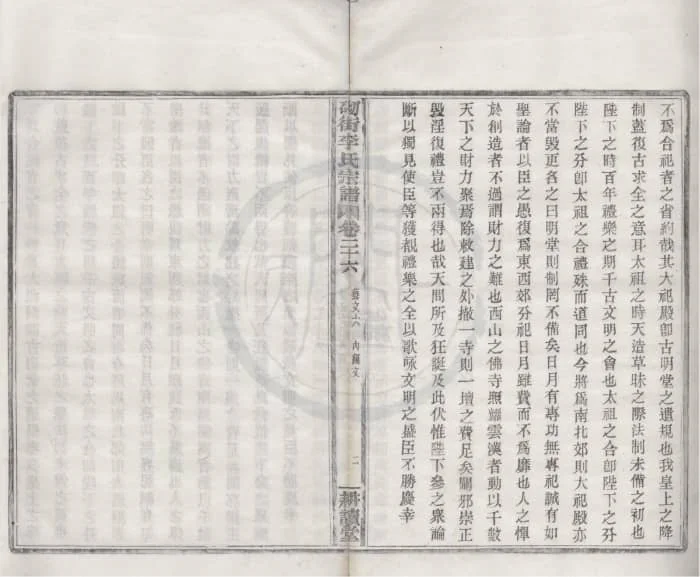 不爲合祀者之省約哉其大祀殿卽古明堂之遺規也我皇上之降
制蓋復古求全之意耳太祖之時天造草昧之際法制未備之初也
陛下之時百年禮樂之期千古文明之會也太祖之合卽陛下之分
陛下之分卽太祖之合禮殊而道同也今將爲南北郊則大祀殿亦
不當毀更名之曰明堂則制罔不備矣日月有專功無專祀誠有如
聖論者以臣之愚復爲東西郊分祀日月雖費而不爲靡也人之憚
於創造者不過謂財力之難也西山之佛寺照耀雲漢者動以千數
天下之財力聚焉除敕建之外撤一寺則一壇之費足矣闢邪崇正
毀淫復禮豈不兩得也哉天問所及狂誕及此伏惟陛下參之衆論
斷以獨見使臣等獲覩禮樂之全以歌咏文明之盛臣不勝慶幸
街李氏宗譜 卷二十六
藝文六 內 文
二
耕讀堂